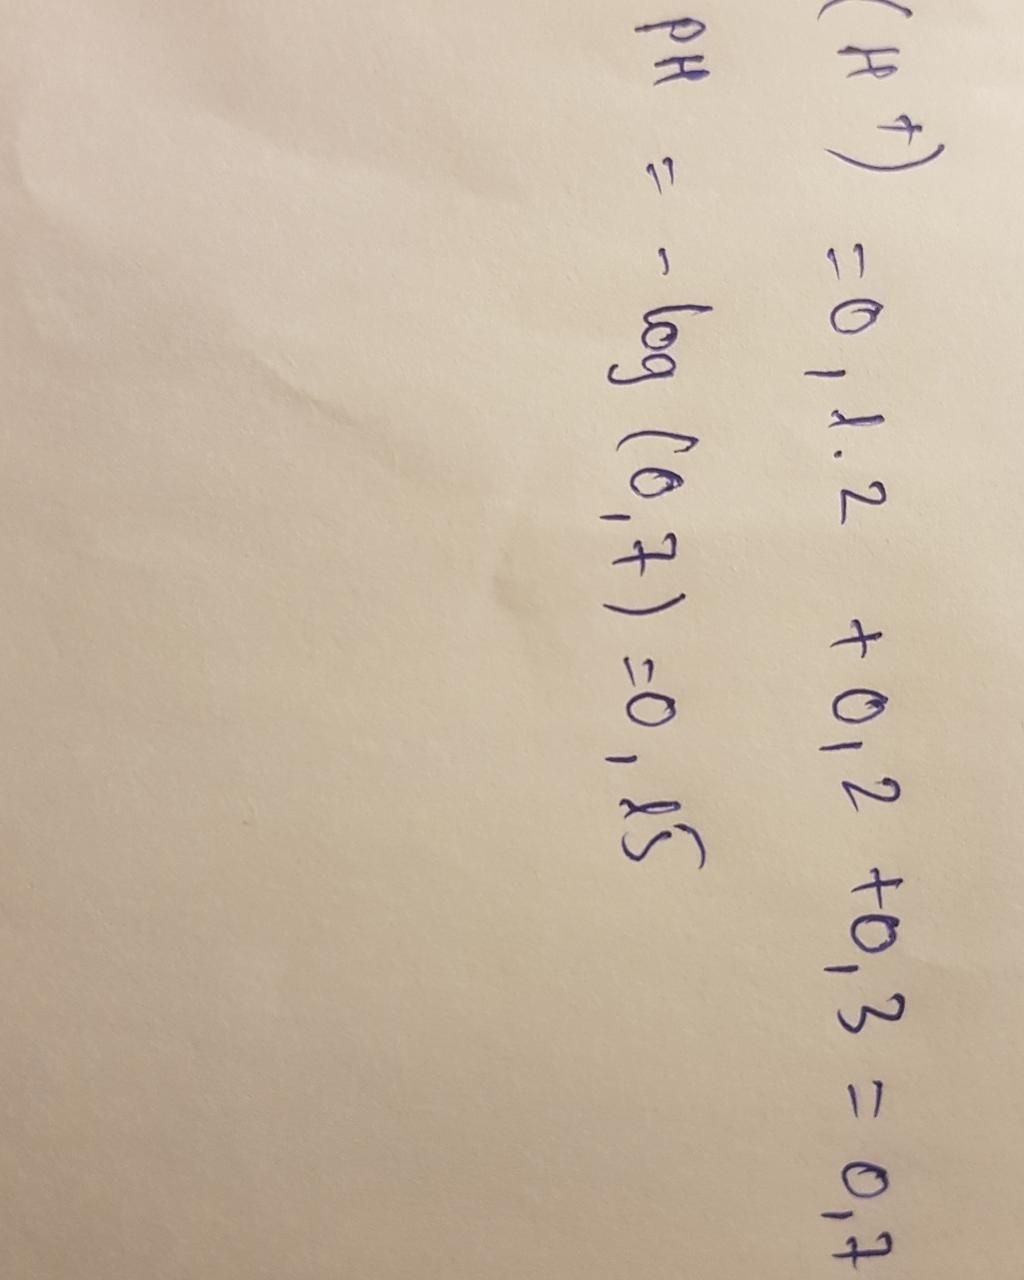 (H+) = 0,1.2 + 0,2 + 0,3 = 0,7
pH = - log (0,7) = 0,15